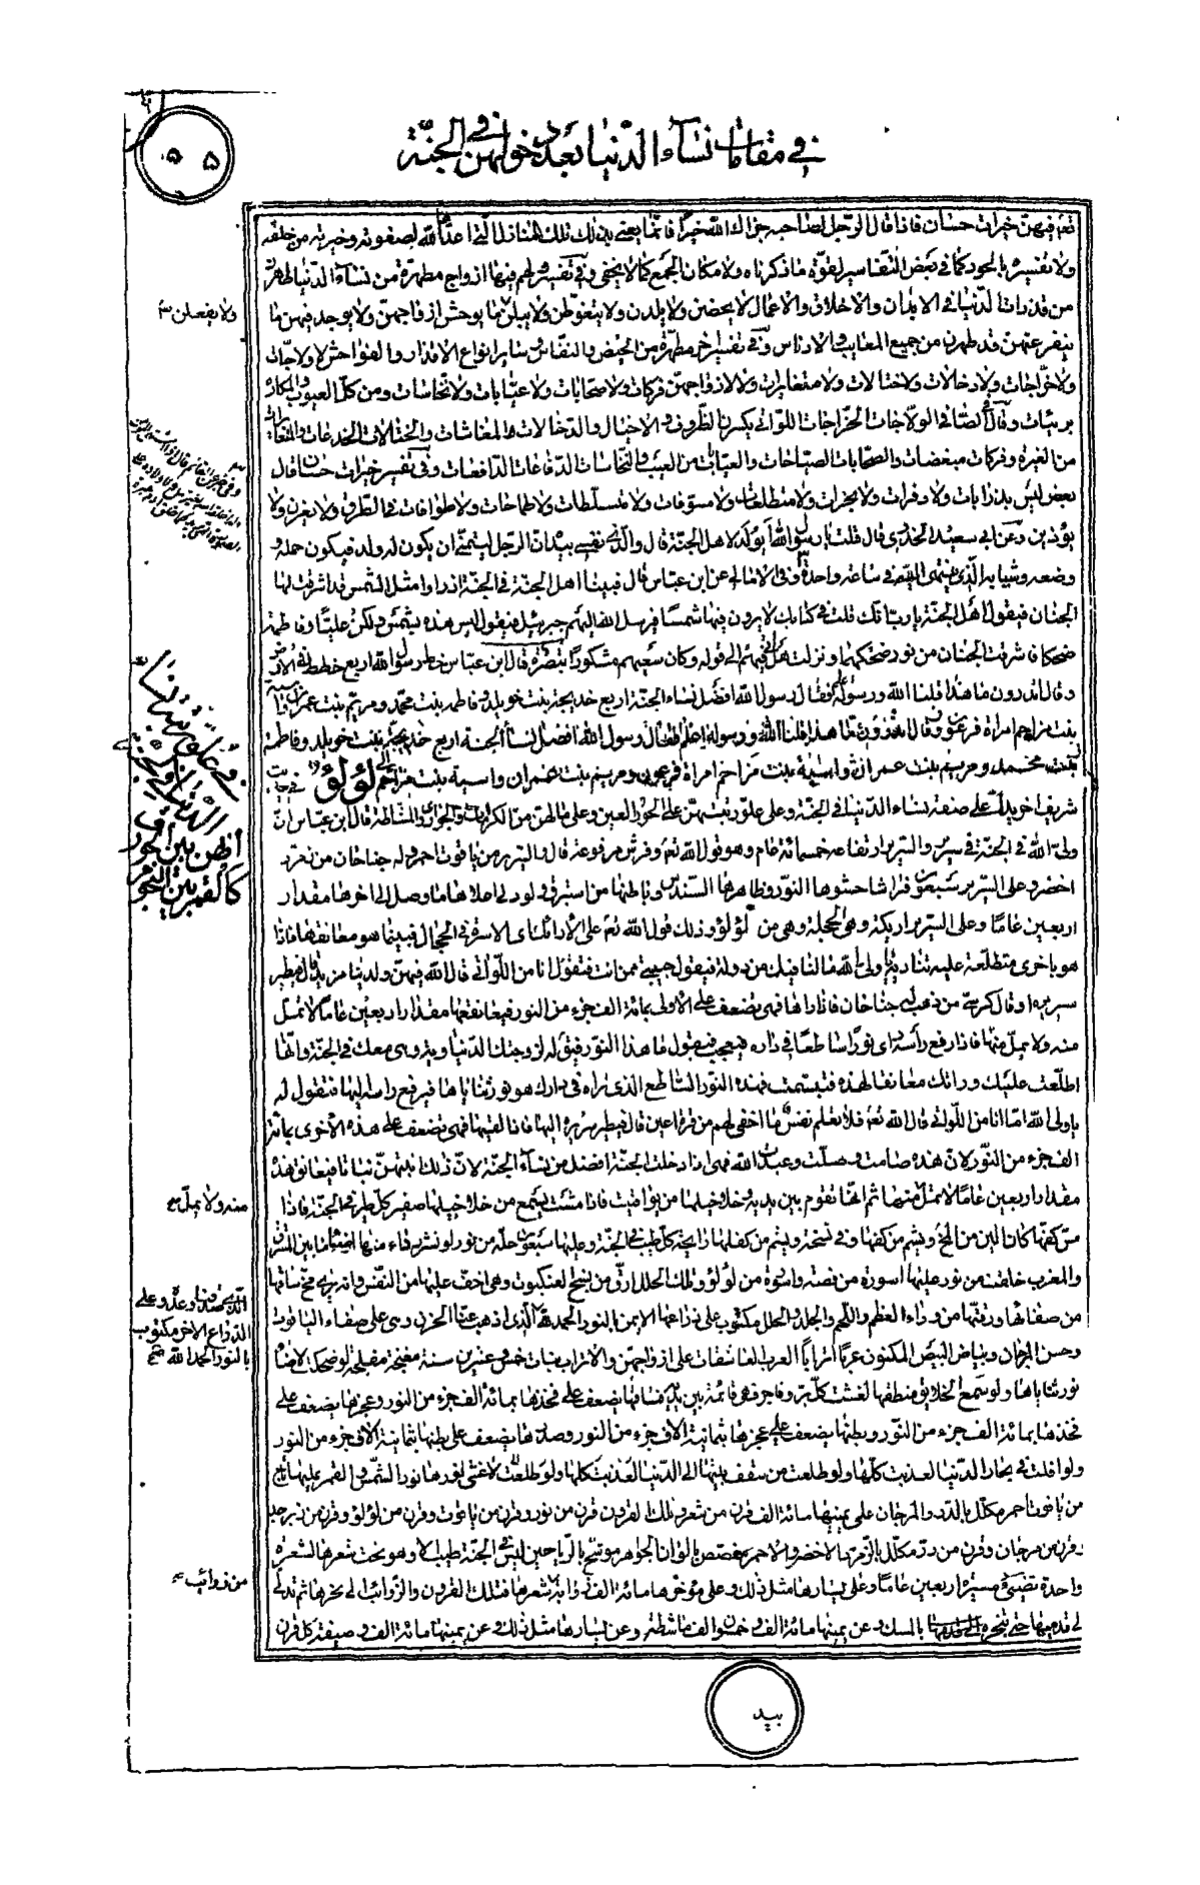 في مقامات نساء الدنيا بعد دخولهن في الجنة
٥٥
تعالى فيهن خيرات حسان فاذا قال الرجل لصاحبه جزاك الله خيرا فانما يعنى بذلك تلك المنازل التي اعدها الله لصفوته وخيرته من خلقه
ولا تفسيره بالحور كما في بعض التفاسير لقوة ما ذكرناه ولامكان الجمع كما لا يخفى وفي تفسير ولهم فيها ازواج مطهرة من نساء الدنيا طهرن
من قذرات الدنيا في الابدان والاخلاق والاعمال لا يحضن ولا يلدن ولا يتغوطن ولا يبلن بما يوحش ازواجهن ولا يوجد فيهن ما
ينفر عنهن قد طهرن من جميع المعايب والادناس وفي تفسير اخر مطهرة من الحيض والنفاس وساير انواع الاقذار والفواحش لا ولاجات
ولا خراجات ولا دخالات ولا ختالات ولا متغايرات ولا لازواجهن فركات ولا صخابات ولا عيابات ولا نحاسات ومن كل العيوب والمكاره
بريئات وقال الصافي الولاجات الخراجات اللواتي يكثرن الظروف والاختيال والدخالات الغاشات والختالات الخداعات والمتغايرات
من الغيرة وفركات مبغضات والصخابات الصياحات والعيابات من العيب والنحاسات الدفاعات الدافعات وفي تفسير خيرات حسان قال
بعض ليس بذربات ولا دفرات ولا بخرات ولا متطلعات ولا مسوفات ولا متسلطات ولا طماحات ولا طوافات في الطرق ولا يغرن ولا
يؤذين وعن ابي سعيد الخدري قال قلت يا رسول الله ايولد لاهل الجنة قال والذي نفسي بيده ان الرجل ليتمنى ان يكون له ولد فيكون حمله و
وضعه وشبابه الذي ينتهى اليه في ساعة واحدة وفي الامالي عن ابن عباس قال فبينا اهل الجنة في الجنة اذ راوا مثل الشمس قد اشرقت لها
الجنان فيقول اهل الجنة يا رب انك قلت في كتابك لا يرون فيها شمسا فيرسل الله اليهم جبرئيل فيقول ليس هذه بشمس ولكن عليا وفاطمة
ضحكا فاشرقت الجنان من نور ضحكهما ونزلت هل اتى فيهم الى قوله وكان سعيهم مشكورا تبصرة قال ابن عباس خط رسول الله اربع خطط في الارض
وقال اتدرون ما هذا قلنا الله ورسوله اعلم فقال رسول الله افضل نساء الجنة اربع خديجة بنت خويلد وفاطمة بنت محمد ومريم بنت عمران واسية
بنت مزاحم امراة فرعون وقال اتدرون ما هذا قلنا الله ورسوله اعلم فقال رسول الله افضل نساء الجنة اربع خديجة بنت خويلد وفاطمة
بنت محمد ومريم بنت عمران واسية بنت مزاحم امراة فرعون ومريم بنت عمران واسية بنت مزاحم لؤلؤ في حديث
شريف اخر يدل على صفة نساء الدنيا في الجنة وعلى علو رتبتهن على الحور العين وعلى مالهن من الكرامات والجواري والمشاطة قال ابن عباس ان
ولي الله في الجنة في سرير والسرير ارتفاعه خمسمائة عام وهو قول الله تعالى وفرش مرفوعة قال والسرير من ياقوت احمر وله جناحان من زمرد
اخضر وعلى السرير سبعون فراشا حشوها النور وظاهرها السندس وباطنها من استبرق ولو دلى اعلاها ما وصل الى اخرها مقدار
اربعين عاما وعلى السرير اريكة وهي الحجلة وهي من لؤلؤ وذلك قول الله تعالى على الارائك اي الاسرة في الحجال فبينما هو معانقها فاذا
هو باخرى متطلعة عليه تناديه يا ولي الله مالنا فيك من دولة فيقول حبيبتي ممن انت فتقول انا من اللواتي قال الله فيهن ولدينا مزيد قال فيطير
سريره او قال كرسي من ذهب له جناحان فاذا راها فهي تضعف على الاولى بمائة الف جزء من النور فيعانقها مقدار اربعين عاما لا تمل
منه ولا يمل منها فاذا رفع رأسه راى نورا ساطعا في داره فيعجب فيقول ما هذا النور فيق له زوجتك الدنياوية وهي معك في الجنة وانها
اطلعت عليك وراتك معانقا لهذه فتبسمت فهذه النور الساطع الذي تراه في دارك هو نور ثناياها فيرفع راسه اليها فتقول له
يا ولي الله اما انا من اللواتي قال الله تعالى فلا تعلم نفس ما اخفى لهم من قرة اعين قال فيطير سريره اليها فاذا لقيها فهي تضعف على هذه الاخرى بمائة
الف جزء من النور لان هذه صامت وصلت وعبدت الله فهي اذا دخلت الجنة افضل من نساء الجنة لان ذلك نبتهن نباتا فيعانق هذه
مقدار اربعين عاما لا تمل منه ولا يمل منها ثم انها تقوم بين يديه وخلاخيلها من يواقيت فاذا مشت يسمع من خلاخيلها صفير كل طير في الجنة فاذا
مس كفها كان الين من المخ ويشم من كفها وفي نسخة ويشم من كفلها رايحة كل طيب في الجنة وعليها سبعون حلة من نور لو نشر رداء منها اضاء ما بين المشرق
والمغرب خلقت من نور عليها اسورة من فضة واسورة من لؤلؤ وتلك الحلل ارق من نسج العنكبوت وهي اخف عليها من النفس وانه يرى مخ ساقها
من صفائها ورقتها من وراء العظم واللحم والجلد والحلل مكتوب على ذراعها الايمن بالنور الحمد لله الذي اذهب عنا الحزن وهي على صفاء الياقوت
وحسن المرجان وبياض البيض المكنون عربا اترابا العرب العاشقات على ازواجهن والاتراب بنات خمس وعشرين سنة مفلجة لو ضحكت لاضاء
نور ثناياها ولو سمع الخلايق منطقها لغشت كل بر وفاجر فهي قائمة بين يديه فساقها يضعف على فخذها بمائة الف جزء من النور وعجزها يضعف على
فخذها بمائة الف جزء من النور وبطنها يضعف على عجزها ثمانية الاف جزء من النور وصدرها يضعف على بطنها بثمانية الاف جزء من النور
ولو تفلت في بحار الدنيا لعذبت كلها ولو طلعت من سقف بيتها الى الدنيا لعذبت كلها ولو طلعت لاغشى نورها نور الشمس والقمر عليها تاج
من ياقوت احمر مكلل بالدر والمرجان على يمينها مائة الف قرن من شعر وتلك القرون قرن من نور وقرن من ياقوت وقرن من لؤلؤ وقرن من زبرجد
وقرن من مرجان وقرن من در مكلل بالزمرد الاخضر والاحمر مفصص بالوان الجواهر موشح بالرياحين ليس في الجنة طيب الا وهو تحت شعرها الشعرة
واحدة تضيئ مسيرة اربعين عاما وعلى يسارها مثل ذلك وعلى مؤخرها مائة الف ذوابة شعرها فتلك القرون والذوائب الى نحرها ثم تدلى
الى قدميها حتى تجره بالمسك وعن يمينها مائة الف وعن يسارها مثل ذلك وعن يمينها مائة الف وصيفة كل قرن
ولا يفعلن
في علو رتبة نساء
الدنيا في الجنة
انهن بين الحور
كالقمر بين النجوم
منه ولا يمل
الذي صدقنا وعده وعلى
الذراع الاخر مكتوب
بالنور الحمد لله
من ذوائب
بيد